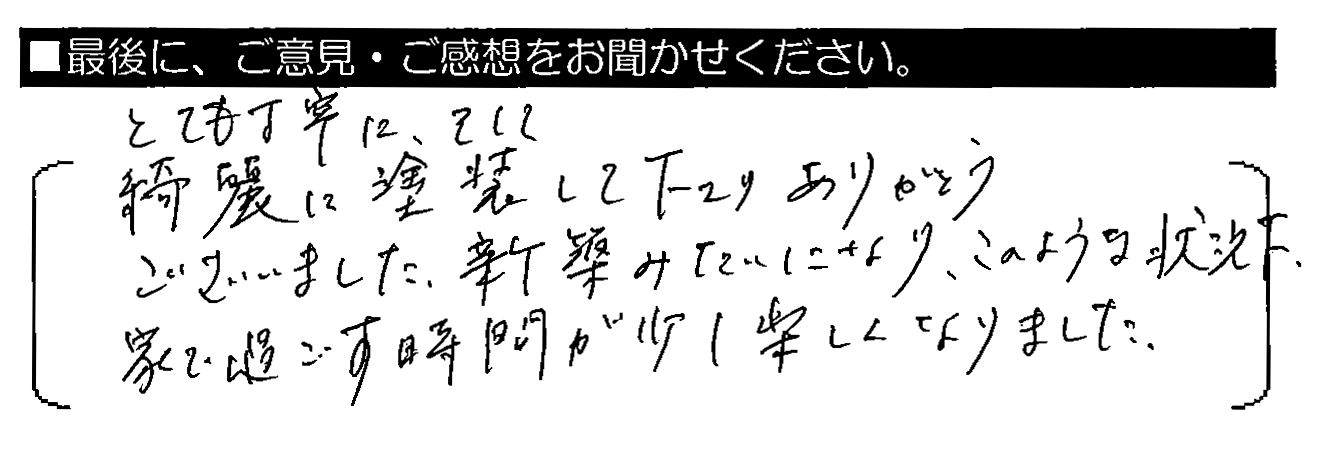 ■最後に、ご意見・ご感想をお聞かせください。
とても丁寧に、そして
綺麗に塗装して下さりありがとう
ございました。新築みたいになり、このような状況下、
家で過ごす時間が少し楽しくなりました。